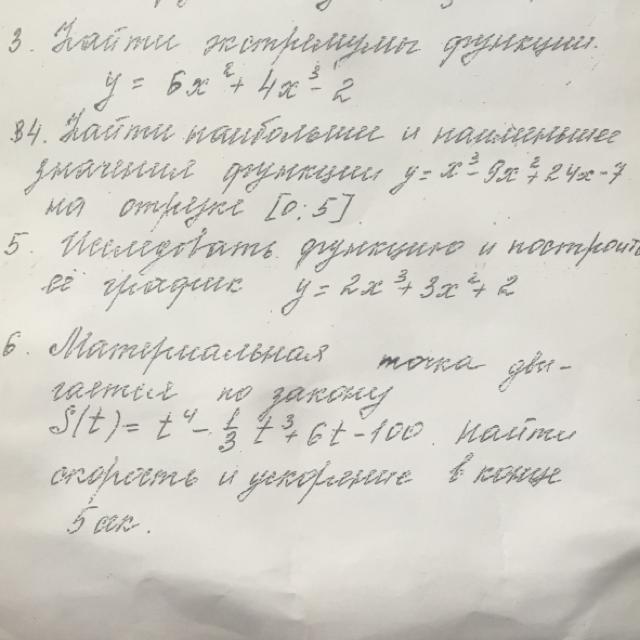 3. Найти экстремумы функции.
y = 6x² + 4x³ - 2
34. Найти наибольшие и наименьшее
значения функции y = x³ - 9x² + 24x - 7
на отрезке [0; 5]
5. Исследовать функцию и построить
её график y = 2x³ + 3x² + 2
6. Материальная точка дви-
гается по закону
S(t) = t⁴ - 1/3 t³ + 6t - 100. Найти
скорость и ускорение в конце
5 сек.